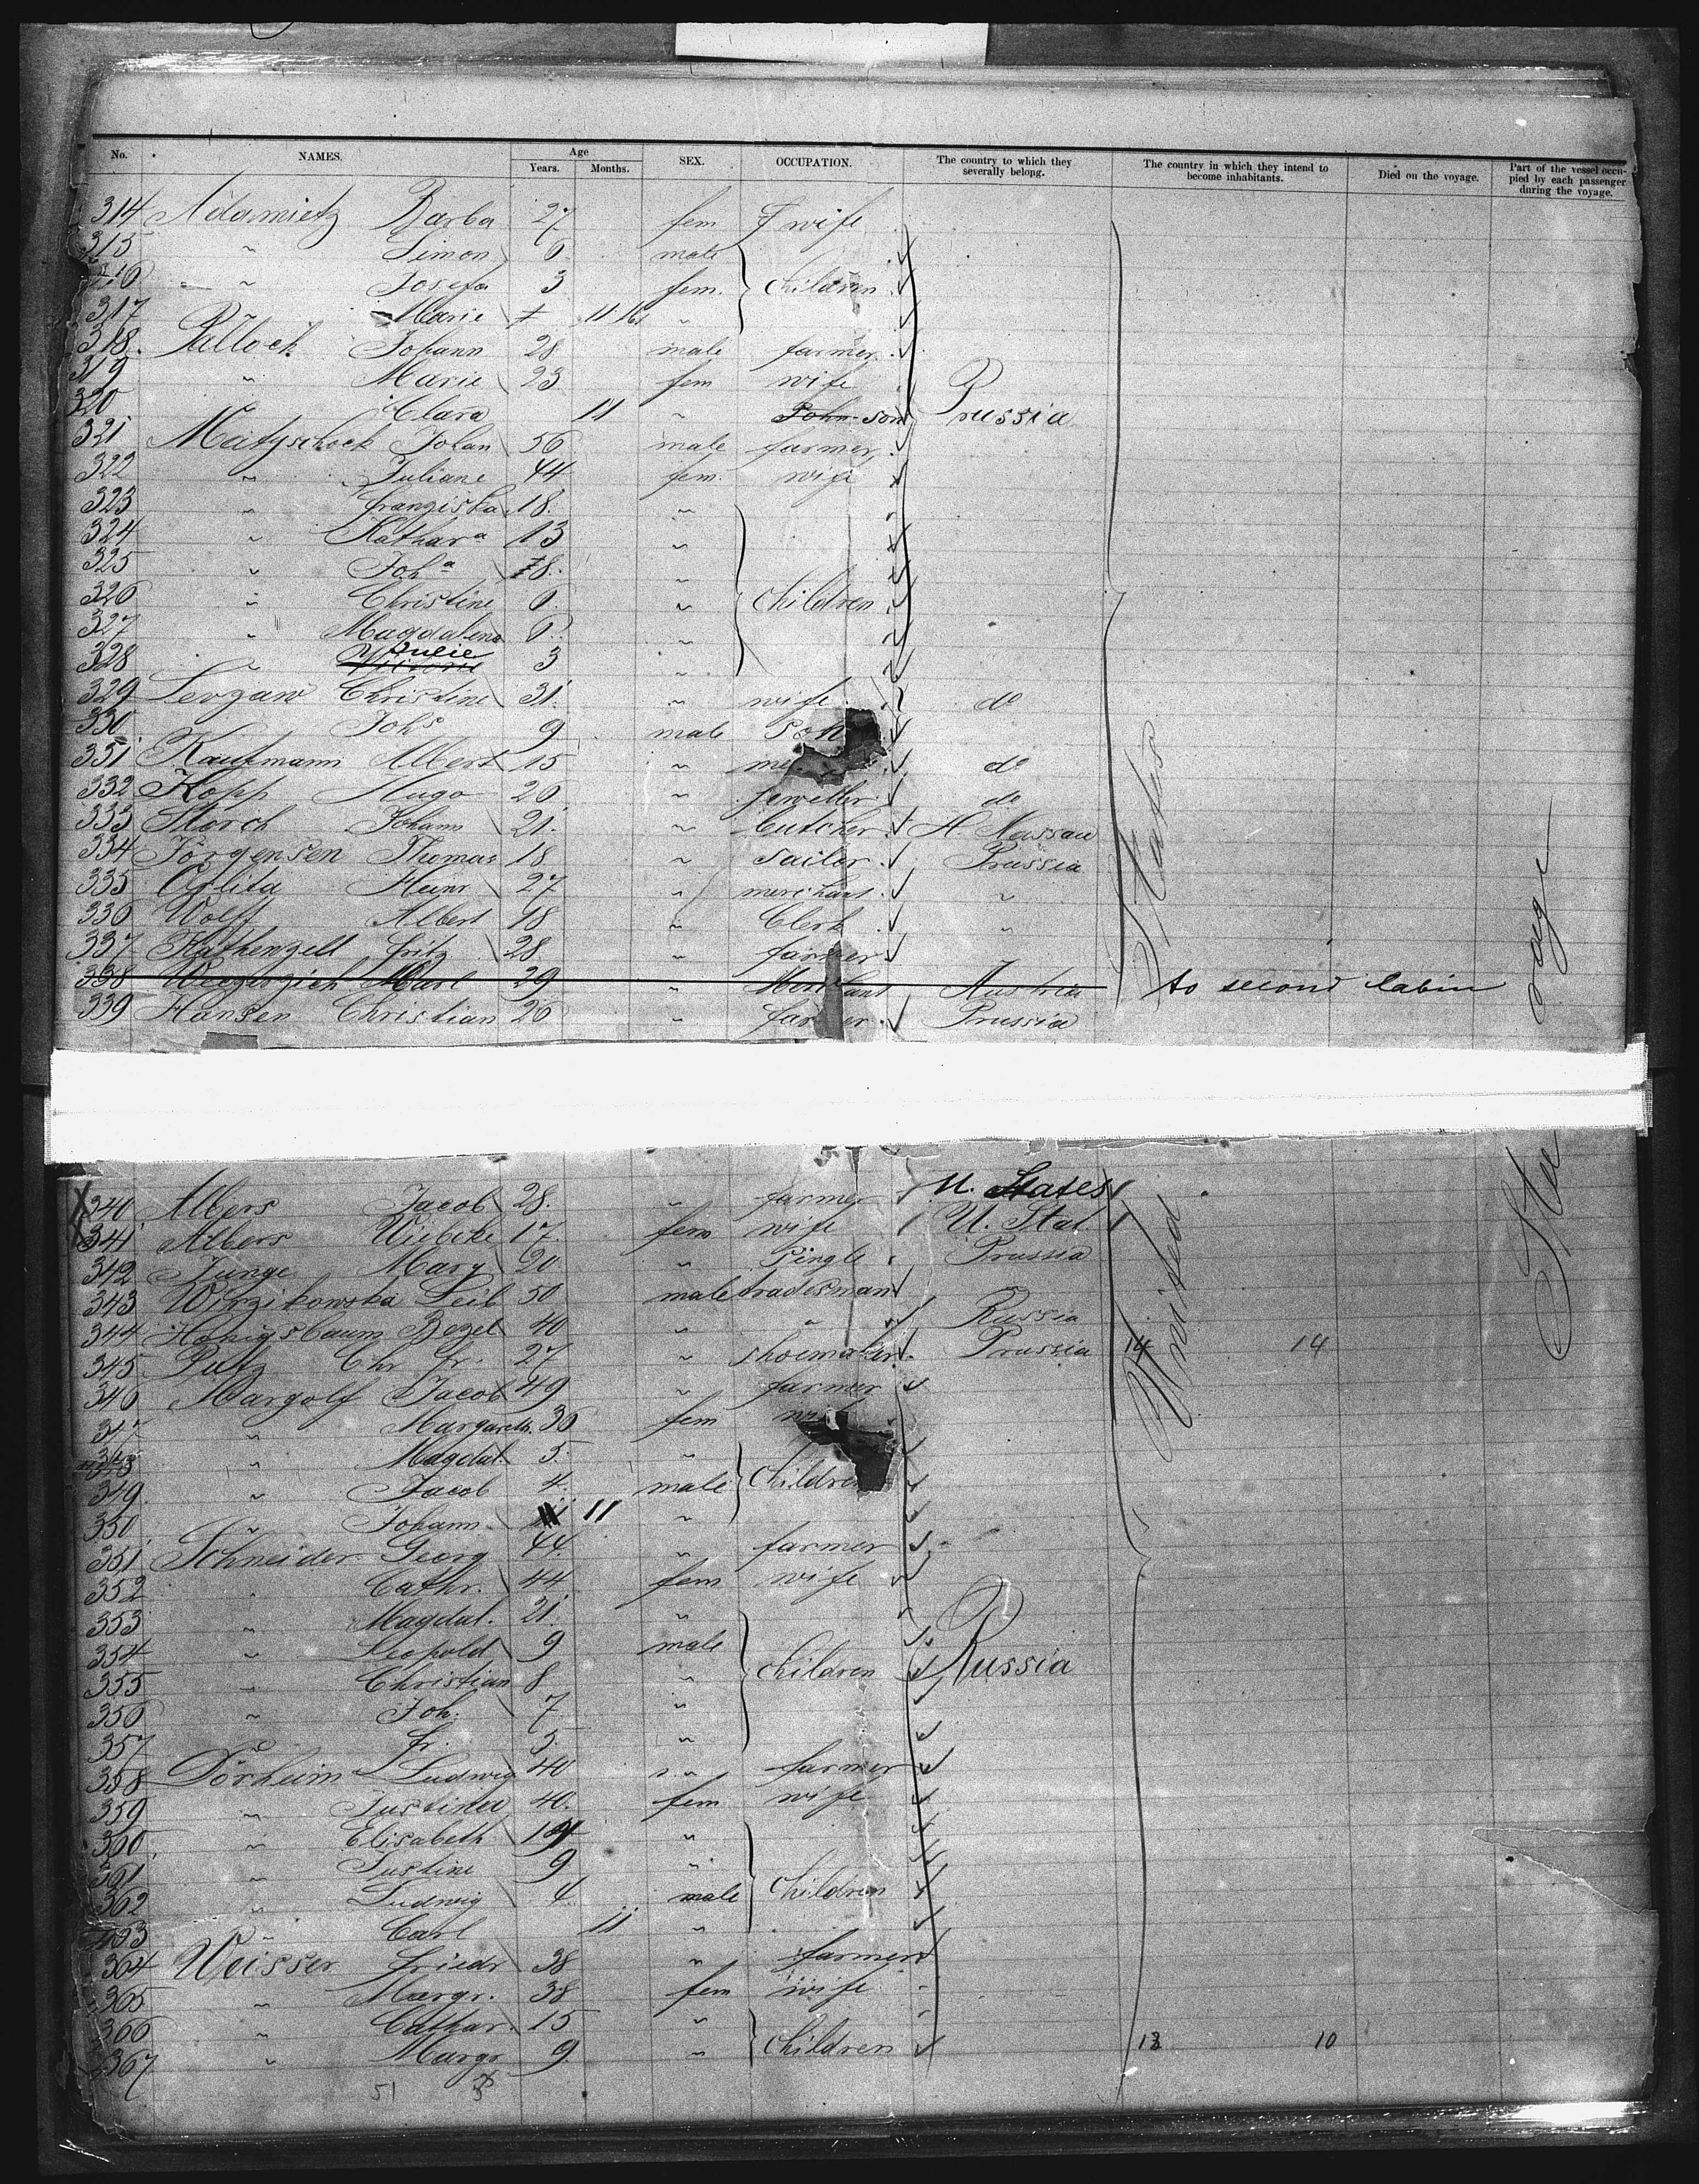 No. NAMES. Age Years. Months. SEX. OCCUPATION. The country to which they severally belong. The country in which they intend to become inhabitants. Died on the voyage. Part of the vessel occupied by each passenger during the voyage.
314 Adamietz Barba 27 fem wife
315 " Simon 6 male
316 " Josefa 3 fem. Children
317 " Marie 11 "
318 Pallock Johann 28 male farmer
319 " Marie 23 fem wife
320 Clara 11 " Prussia
321 Matyschock Johan 56 male farmer
322 " Juliane 44 fem. wife
323 " Franziska 18 "
324 " Kathara 13 "
325 " Joha 8 "
326 " Christine 6 " Children
327 " Magdalena 6 "
328 " Julie 3 "
329 Christine 31 " wife do
330 Johs 9 male son
331 Kaufmann Albert 15 " do
332 Kopp Hugo 26 " jeweller do
333 Storch Johann 21 " butcher H Nassau
334 Jörgensen Thomas 18 " sailor Prussia
335 Heinr. 27 " merchant "
336 Wolff Albert 18 " Clerk "
337 Fritz 28 " farmer
338 29 " Merchant Austria to second Cabin
339 Hansen Christian 26 " farmer Prussia
340 Albers Jacob 28 " farmer U. States
341 Albers Wiebcke 17 fem wife U. Stat
342 Junge Mary 20 " single Prussia
343 Wirzikowska Leib 50 male tradesman
344 Honigsbaum Bezel 40 " " Russia
345 Putz Chr Fr. 27 " shoemaker Prussia 14 14
346 Margolf Jacob 49 " farmer
347 " Margareth. 36 fem
348 " Magdal. 5 "
349 " Jacob 4 male Children
350 " Johann 11 "
351 Schneider Georg 44 " farmer
352 " Cathr. 44 fem wife
353 " Magdal. 21 "
354 " Leopold 9 male
355 " Christian 8 " children Russia
356 " Joh. 7 "
357 " Fr. 5 "
358 Dörheim Ludwig 40 farmer
359 " Justina 40 fem wife
360 " Elisabeth "
361 " Justine 9 "
362 " Ludwig 4 male Children
363 " Carl 11 "
364 Weisser Friedr 38 " farmer
365 " Margr. 38 fem wife
366 " Cathar. 15 "
367 " Margr 9 " Children 10
51
United States